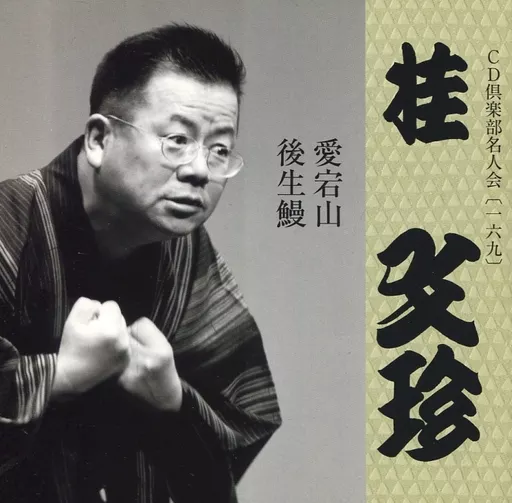 CD倶楽部名人会〔一六九〕
桂文珍
愛宕山
後生鰻